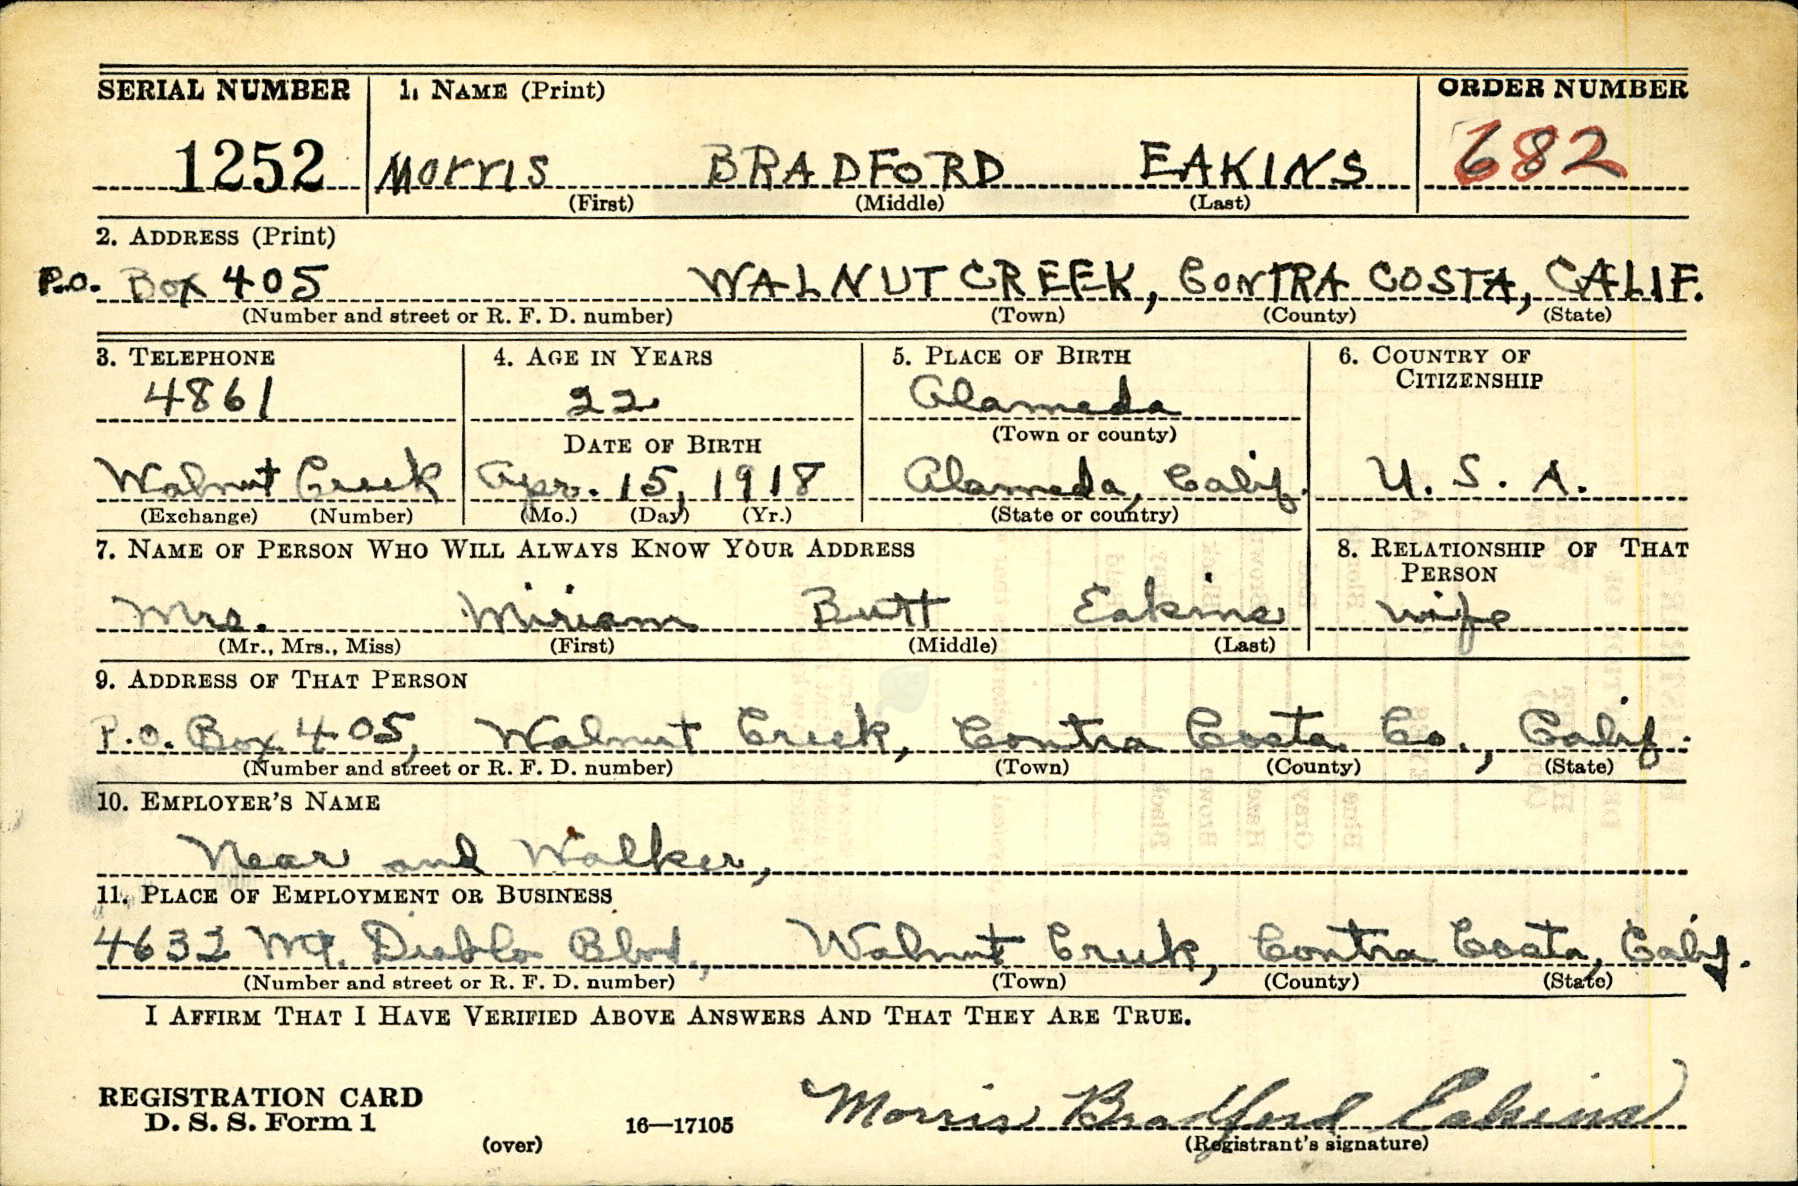 SERIAL NUMBER 1. NAME (Print) ORDER NUMBER
1252 Morris BRADFORD EAKINS 682
(First) (Middle) (Last)
2. ADDRESS (Print)
P.O. Box 405 WALNUT CREEK, CONTRA COSTA, CALIF.
(Number and street or R. F. D. number) (Town) (County) (State)
3. TELEPHONE 4. AGE IN YEARS 5. PLACE OF BIRTH 6. COUNTRY OF
CITIZENSHIP
4861 22 Alameda
(Town or county)
DATE OF BIRTH
Walnut Creek Apr. 15, 1918 Alameda, Calif. U. S. A.
(Exchange) (Number) (Mo.) (Day) (Yr.) (State or country)
7. NAME OF PERSON WHO WILL ALWAYS KNOW YOUR ADDRESS 8. RELATIONSHIP OF THAT
PERSON
Mrs. Miriam Butt Eakins wife
(Mr., Mrs., Miss) (First) (Middle) (Last)
9. ADDRESS OF THAT PERSON
P.O. Box 405, Walnut Creek, Contra Costa Co., Calif.
(Number and street or R. F. D. number) (Town) (County) (State)
10. EMPLOYER'S NAME
Near and Walker,
11. PLACE OF EMPLOYMENT OR BUSINESS
4632 Mt. Diablo Blvd., Walnut Creek, Contra Costa, Calif.
(Number and street or R. F. D. number) (Town) (County) (State)
I AFFIRM THAT I HAVE VERIFIED ABOVE ANSWERS AND THAT THEY ARE TRUE.
REGISTRATION CARD
D. S. S. Form 1 16—17105 Morris Bradford Eakins
(over) (Registrant's signature)